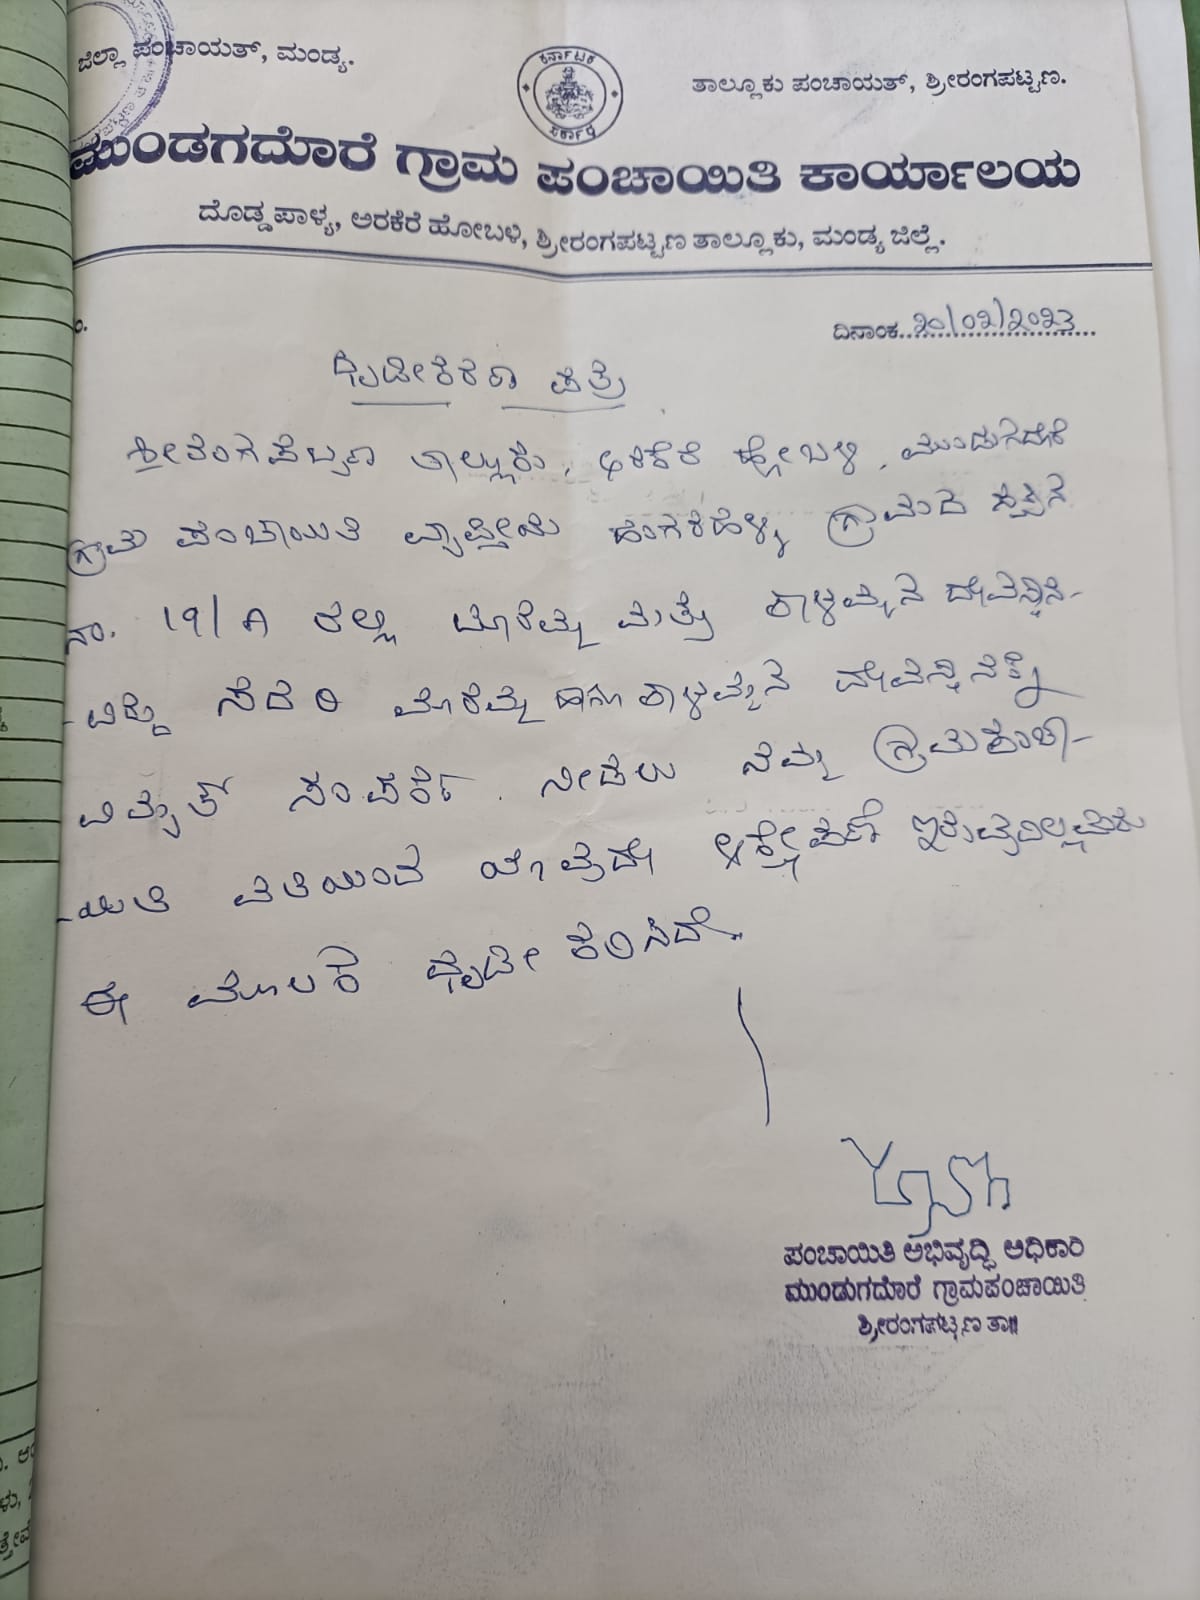 ಜಿಲ್ಲಾ ಪಂಚಾಯತ್, ಮಂಡ್ಯ.
ಕರ್ನಾಟಕ ಸರ್ಕಾರ
ತಾಲ್ಲೂಕು ಪಂಚಾಯತ್, ಶ್ರೀರಂಗಪಟ್ಟಣ.
ಮುಂಡಗದೊರೆ ಗ್ರಾಮ ಪಂಚಾಯಿತಿ ಕಾರ್ಯಾಲಯ
ದೊಡ್ಡಪಾಳ್ಯ, ಅರಕೆರೆ ಹೋಬಳಿ, ಶ್ರೀರಂಗಪಟ್ಟಣ ತಾಲ್ಲೂಕು, ಮಂಡ್ಯ ಜಿಲ್ಲೆ.
ದಿನಾಂಕ..20/02/2023
ಧೃಡೀಕರಣ ಪತ್ರ
ಶ್ರೀರಂಗಪಟ್ಟಣ ತಾಲ್ಲೂಕು, ಅರಕೆರೆ ಹೋಬಳಿ, ಮುಂಡುಗದೊರೆ
ಗ್ರಾಮ ಪಂಚಾಯಿತಿ ವ್ಯಾಪ್ತಿಯ ಹಂಗರಹಳ್ಳಿ ಗ್ರಾಮದ
ನಂ. 19/A ರಲ್ಲಿ ಮತ್ತು ಕಾಳಮ್ಮನ ದೇವಸ್ಥಾನ-
-ವಿದ್ದು ಸದರಿ ಹಾಗೂ ಕಾಳಮ್ಮನ ದೇವಸ್ಥಾನಕ್ಕೆ
ವಿದ್ಯುತ್ ಸಂಪರ್ಕ ನೀಡಲು ನಮ್ಮ ಗ್ರಾಮಪಂಚಾ-
-ಯಿತಿ ವತಿಯಿಂದ ಯಾವುದೇ ಆಕ್ಷೇಪಣೆ ಇರುವುದಿಲ್ಲವೆಂದು
ಈ ಮೂಲಕ ಧೃಡೀಕರಿಸಿದೆ.
ಪಂಚಾಯಿತಿ ಅಭಿವೃದ್ಧಿ ಅಧಿಕಾರಿ
ಮುಂಡುಗದೊರೆ ಗ್ರಾಮಪಂಚಾಯಿತಿ
ಶ್ರೀರಂಗಪಟ್ಟಣ ತಾ॥